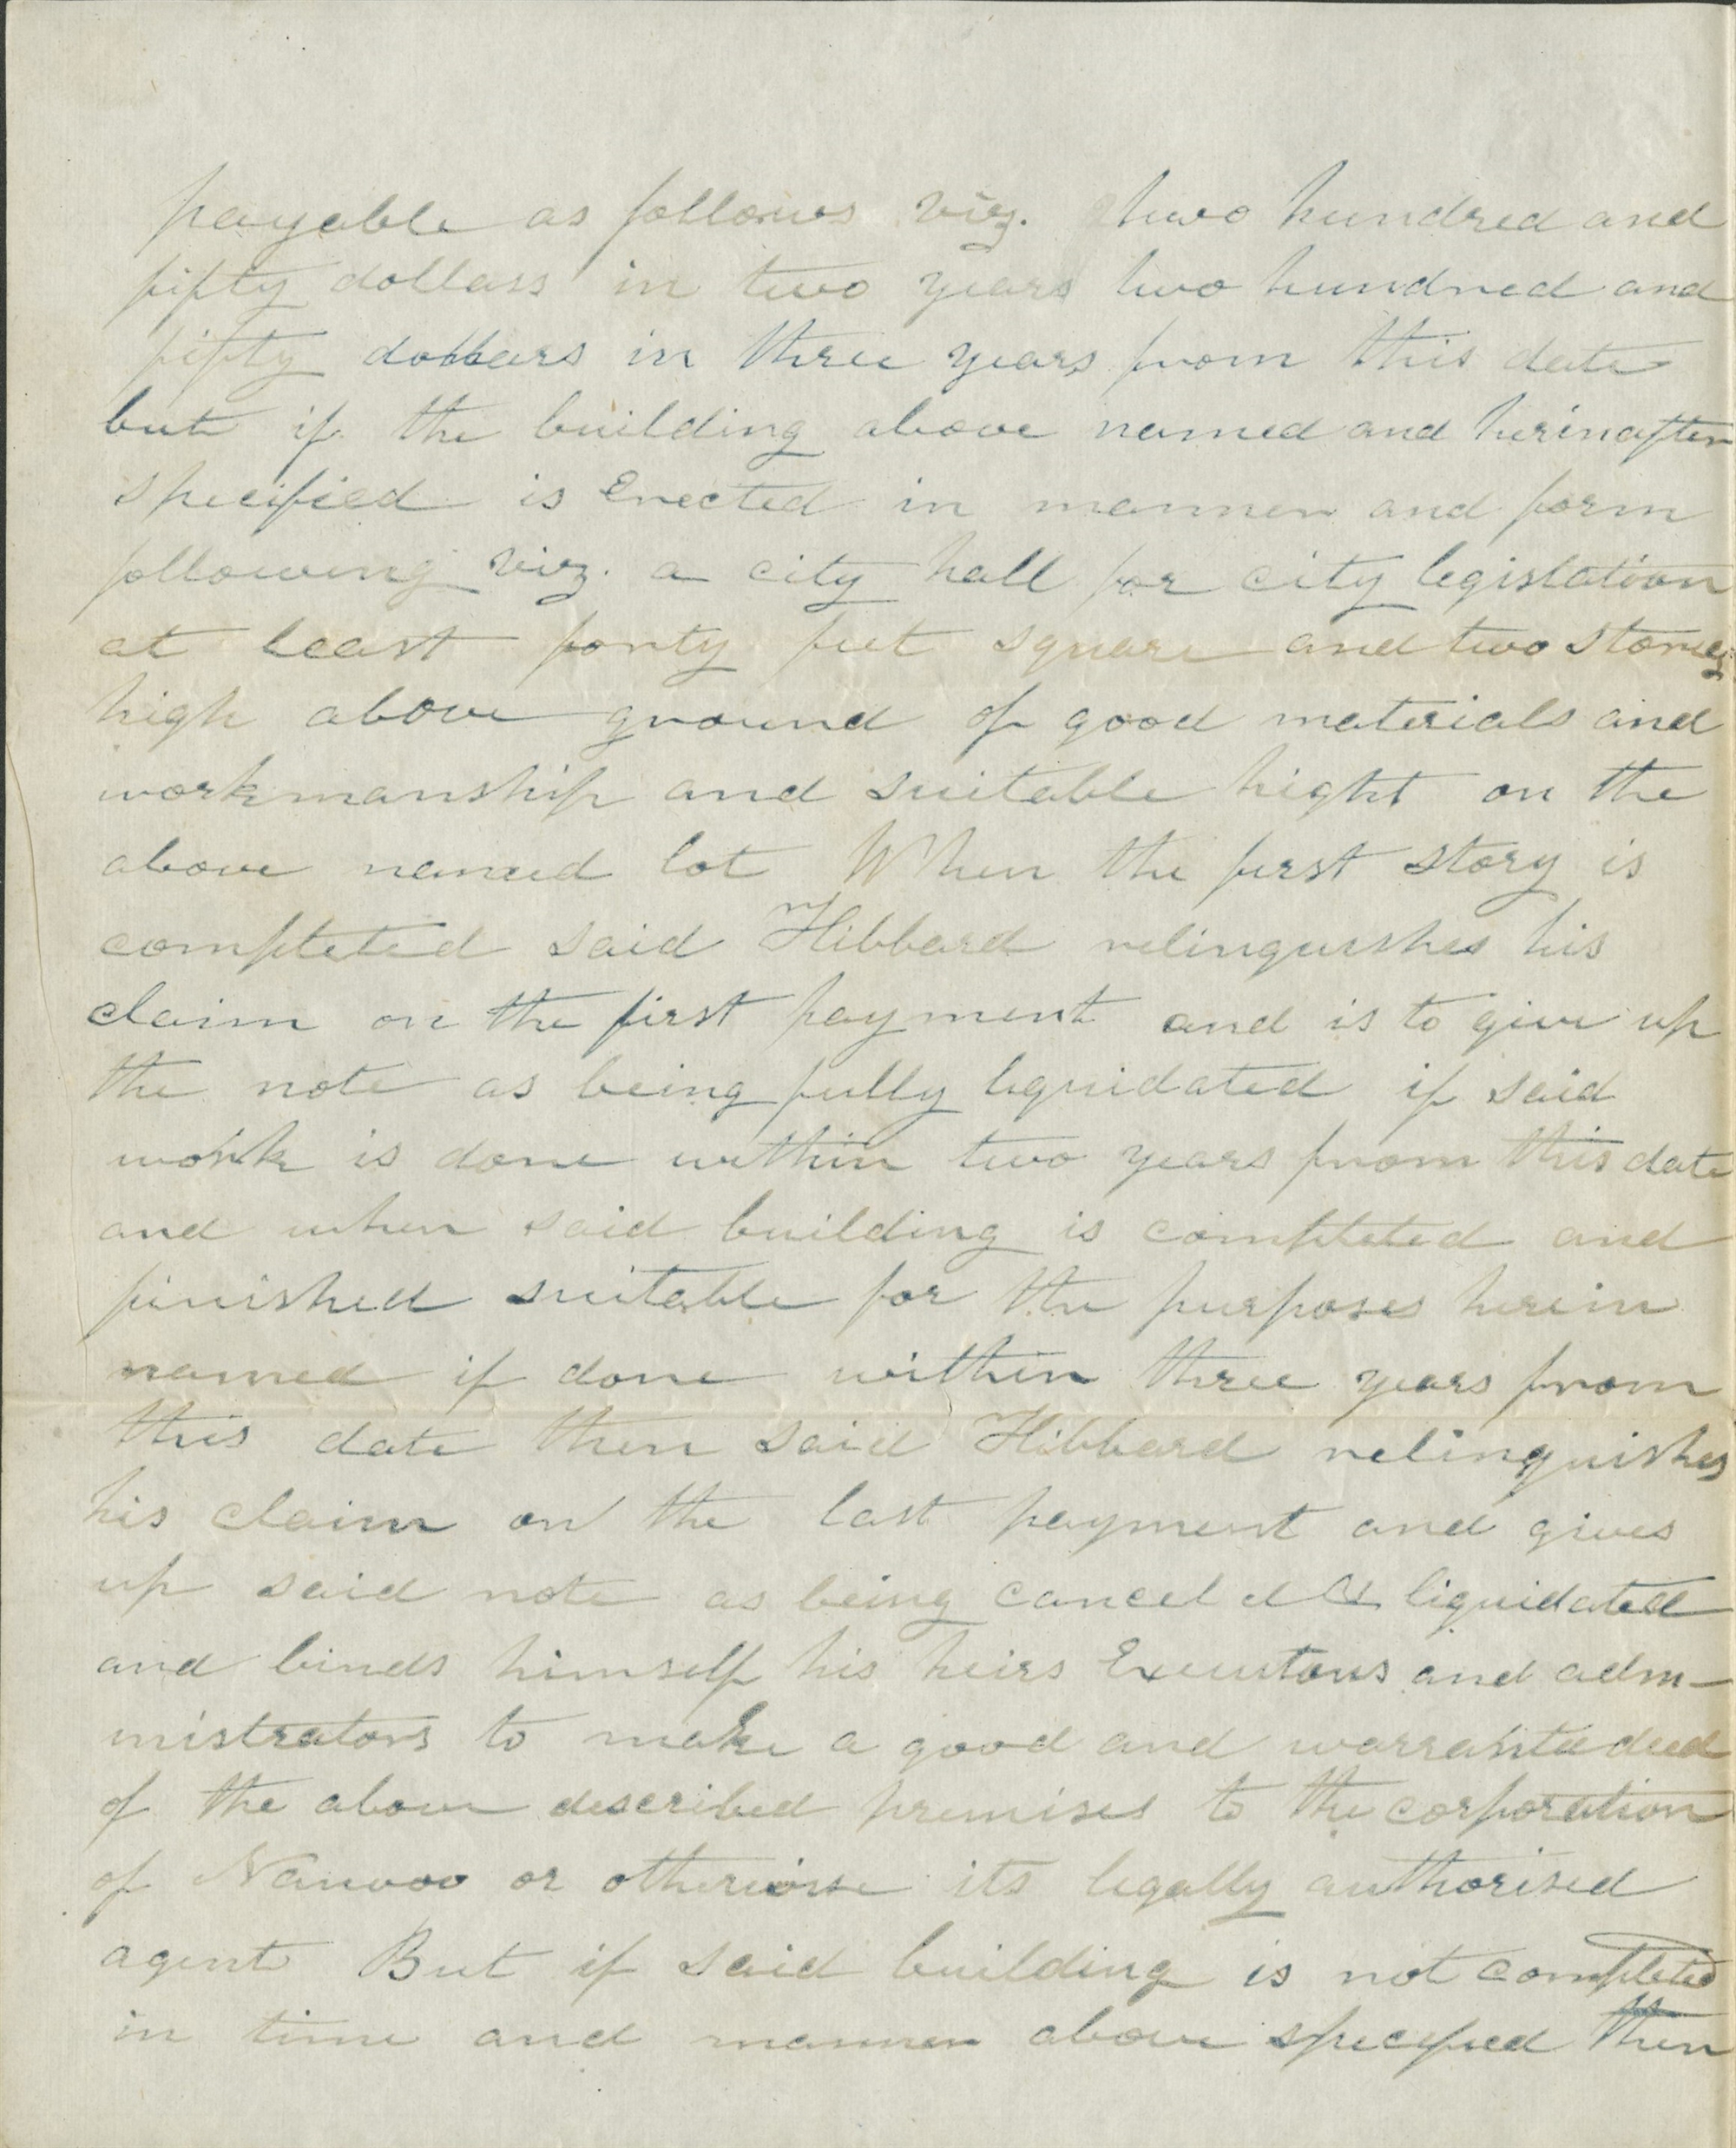 payable as follows viz. two hundred and
fifty dollars in two years two hundred and
fifty dollars in three years from this date
but if the building above named and herinafter
specified is Erected in manner and form
following viz. a city hall for city legislation
at least forty feet square and two stories
high above ground of good materials and
workmanship and suitable hight on the
above named lot When the first story is
completed said Hibbard relinquishes his
claim on the first payment and is to give up
the note as being fully liquidated if said
work is done within two years from this date
and when said building is completed and
finished suitable for the purposes herein
named if done within three years from
this date then said Hibbard relinquishes
his claim on the last payment and gives
up said note as being canceled & liquidated
and binds himself his heirs Executors and adm-
inistrators to make a good and warrantee deed
of the above described premises to the corporation
of Nauvoo or otherwise its legally authorised
agent But if said building is not completed
in time and manner above specified then